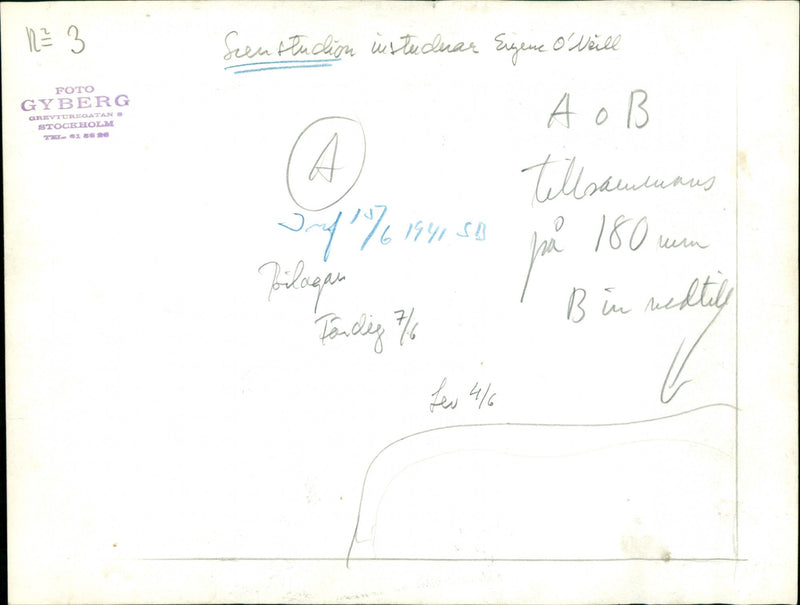 No 3
Scenstudion instuderar Eugene O'Neill
FOTO
GYBERG
GREVTUREGATAN 8
STOCKHOLM
TEL. 61 56 26
A o B
A
tillsammans
15/6 1941 SB
på 180 mm
Bilagan
B in nedtill
Färdig 7/6
Lev 4/6